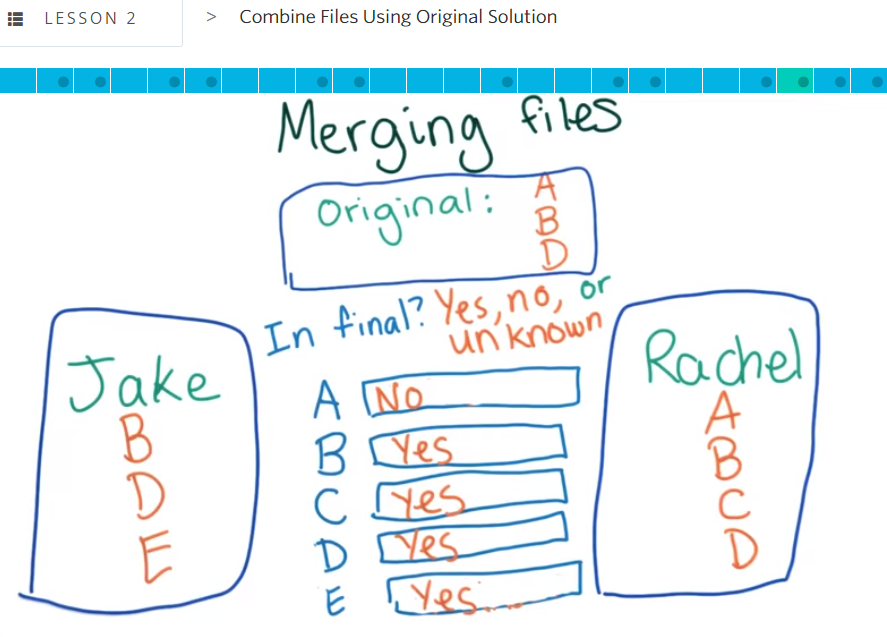 LESSON 2 > Combine Files Using Original Solution
Merging files
Original: A
B
D
In final? Yes, no, or
unknown
Jake
B
D
E
A No
B Yes
C Yes
D Yes
E Yes
Rachel
A
B
C
D